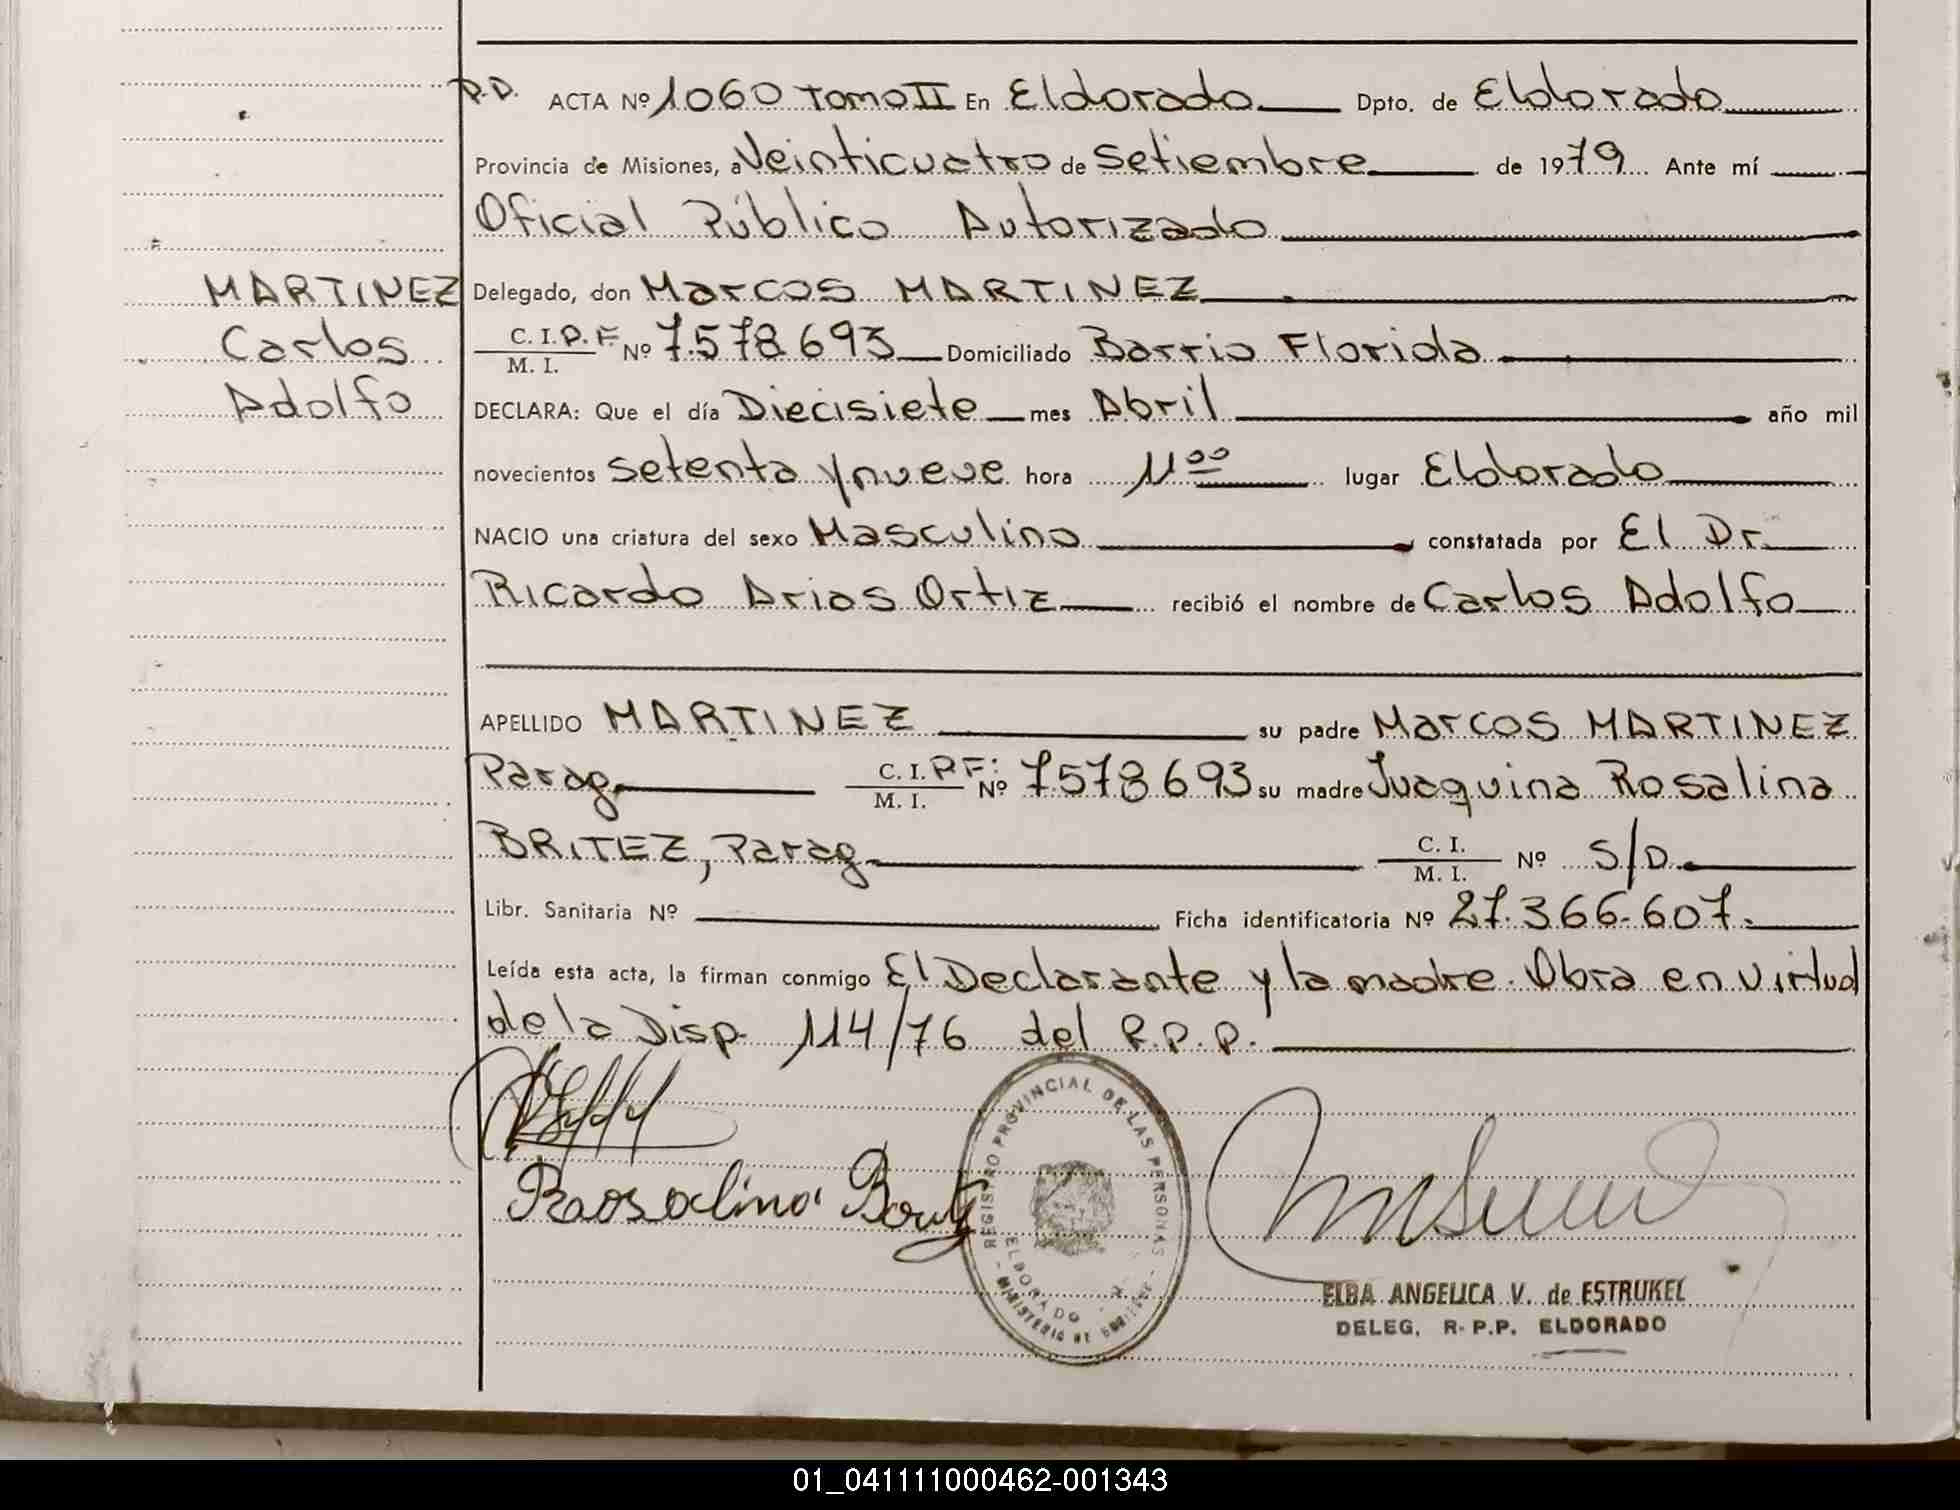 P.D. ACTA Nº 1060 Tomo II En Eldorado Dpto. de Eldorado
Provincia de Misiones, a Veinticuatro de Setiembre de 1979. Ante mí
Oficial Público Autorizado
MARTINEZ Delegado, don Marcos MARTINEZ
Carlos C. I. P. F. Nº 7.578.693 Domiciliado Barrio Florida
M. I.
Adolfo DECLARA: Que el día Diecisiete mes Abril año mil
novecientos setenta y nueve hora 11 00 lugar Eldorado
NACIO una criatura del sexo Masculino constatada por El Dr.
Ricardo Arias Ortiz recibió el nombre de Carlos Adolfo
APELLIDO MARTINEZ su padre Marcos MARTINEZ
Parag. C. I. P F: Nº 7578693 su madre Juaquina Rosalina
M. I.
BRITEZ, Parag. C. I. Nº S/D.
M. I.
Libr. Sanitaria Nº Ficha identificatoria Nº 27.366.607.
Leída esta acta, la firman conmigo El Declarante y la madre. Obra en virtud
de la Disp. 114/76 del R.P.P.
REGISTRO PROVINCIAL DE LAS PERSONAS
ELDORADO
MINISTERIO DE
ELBA ANGELICA V. de ESTRUKEL
DELEG. R.P.P. ELDORADO
01_041111000462-001343